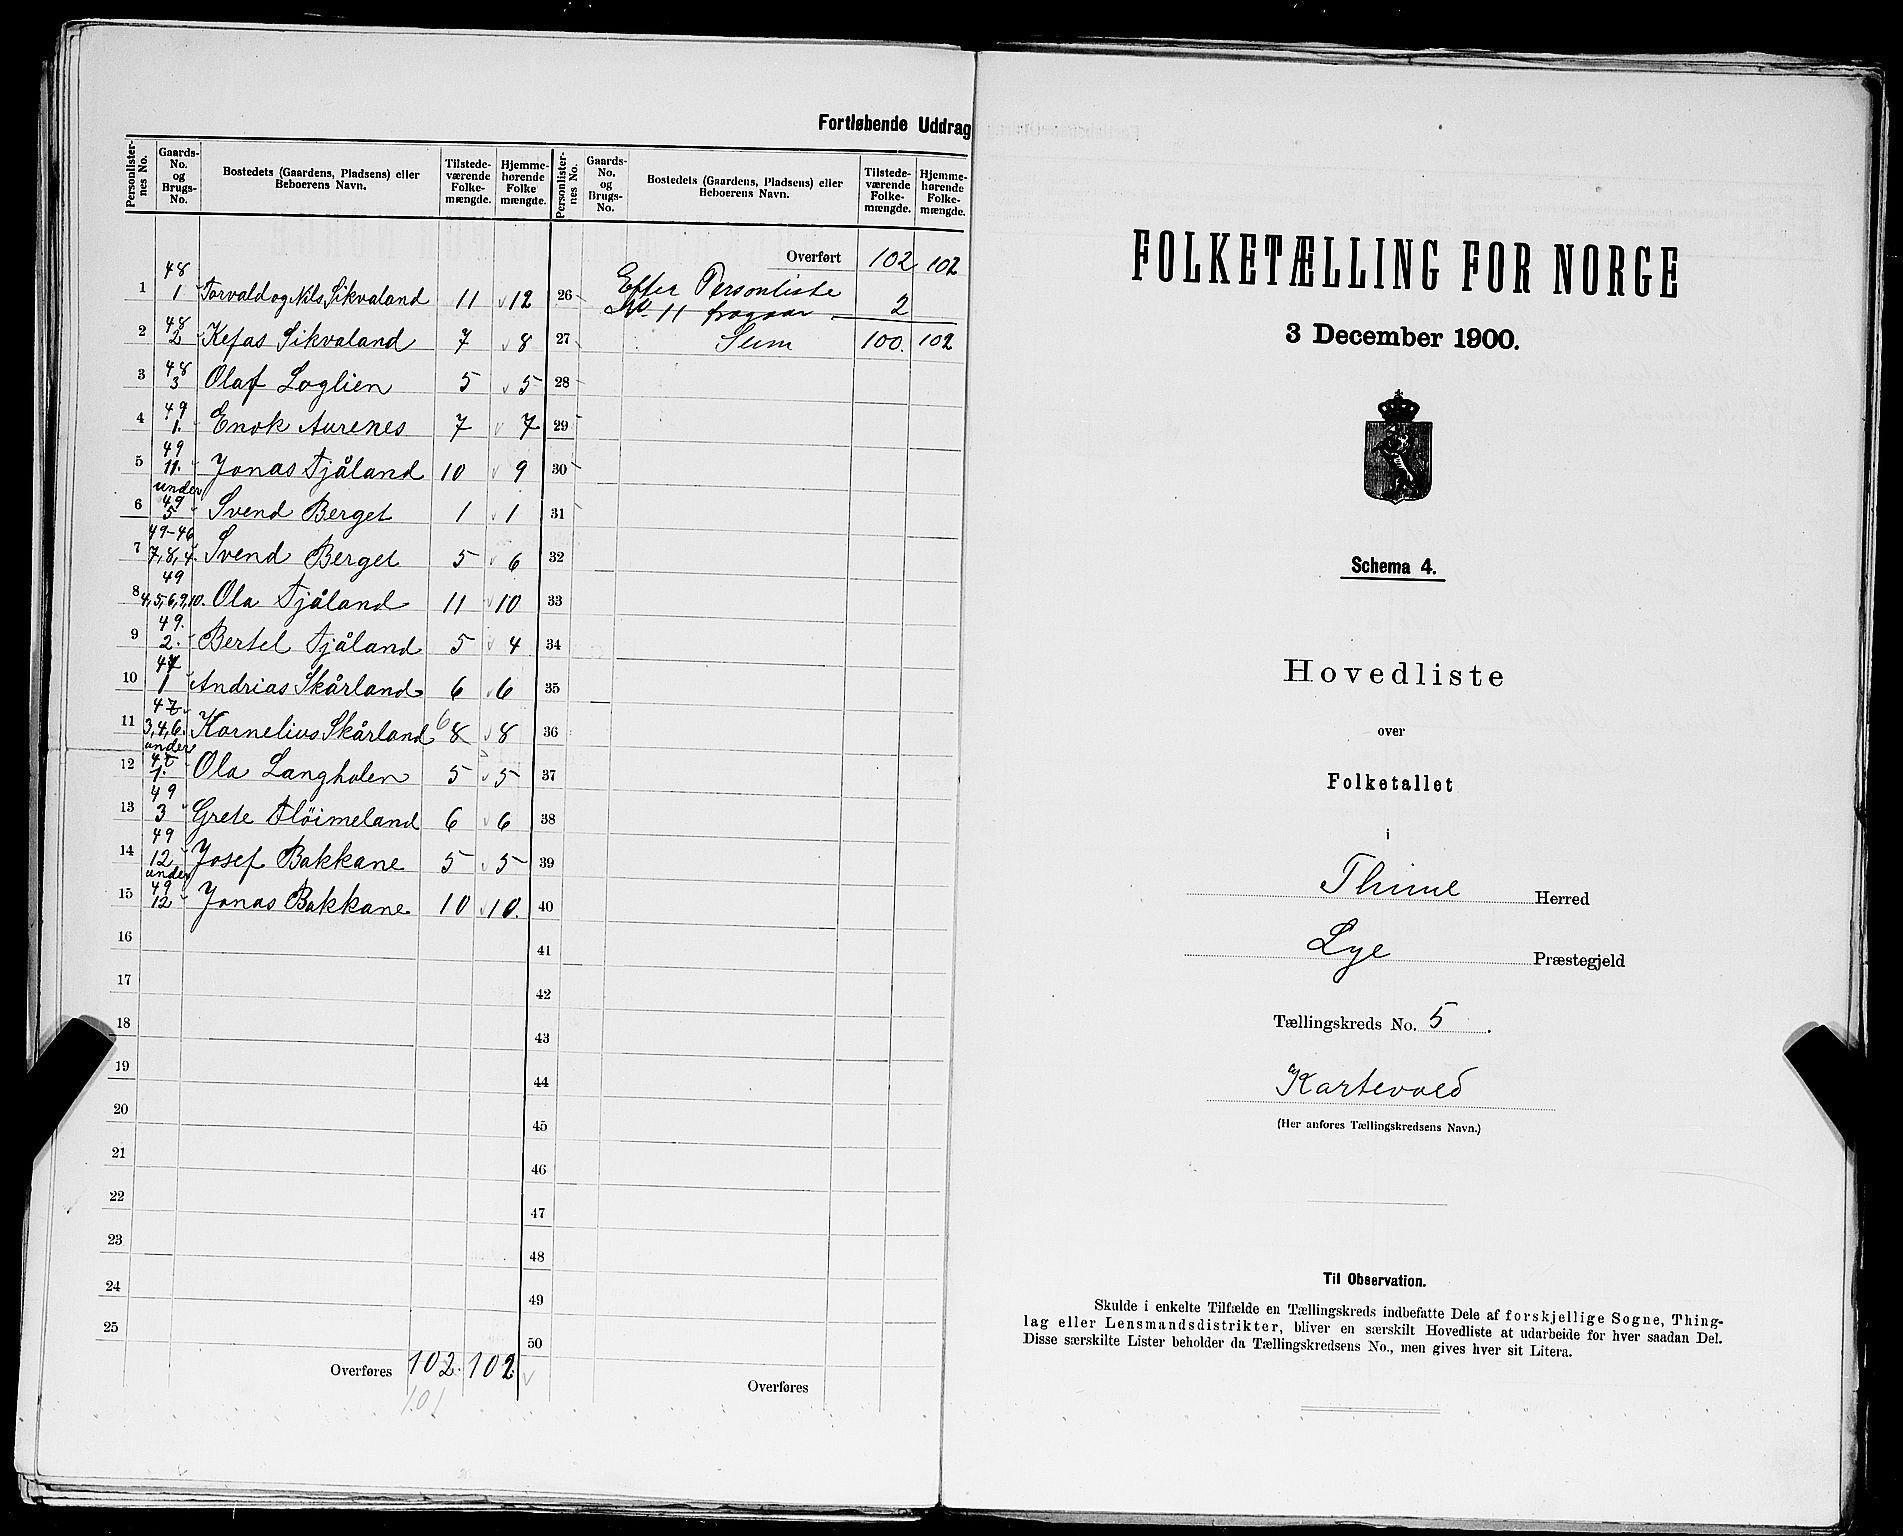 Fortløbende Uddrag
Personlisternes No. | Gaards-No. og Brugs-No. | Bostedets (Gaardens, Pladsens) eller Beboerens Navn. | Tilstedeværende Folkemængde. | Hjemmehørende Folkemængde.
1 | 48 1 | Torvald og Nils Sikvaland | 11 | 12
2 | 48 2 | Kefas Sikvaland | 7 | 8
3 | 48 3 | Olaf Loglien | 5 | 5
4 | 49 1. | Enok Aurenes | 7 | 7
5 | 49 11. | Jonas Tjåland | 10 | 9
6 | under 49 5 | Svend Berget | 1 | 1
7 | 49-46 7,8,4. | Svend Berget | 5 | 6
8 | 49 4,5,6,9,10. | Ola Tjåland | 11 | 10
9 | 49. 2. | Bertel Tjåland | 5 | 4
10 | 47 1 | Andrias Skårland | 6 | 6
11 | 47 3,4,6. | Kornelius Skårland | 6 8 | 8
12 | under 47 1. | Ola Langholen | 5 | 5
13 | 49 3 | Grete Fløimeland | 6 | 6
14 | 49 12 | Josef Bakkane | 5 | 5
15 | under 49 12 | Jonas Bakkane | 10 | 10.
16
17
18
19
20
21
22
23
24
25
Overføres 102. 102.
101
Personlisternes No. | Gaards-No. og Brugs-No. | Bostedets (Gaardens, Pladsens) eller Beboerens Navn. | Tilstedeværende Folkemængde. | Hjemmehørende Folkemængde.
Overført 102 102
26 Efter Personliste
No 11 fragaar 2
27 Sum 100. 102
28
29
30
31
32
33
34
35
36
37
38
39
40
41
42
43
44
45
46
47
48
49
50
Overføres
FOLKETÆLLING FOR NORGE
3 December 1900.
Schema 4.
Hovedliste
over
Folketallet
i
Thime Herred
Lye Præstegjeld
Tællingskreds No. 5.
Kartevold
(Her anføres Tællingskredsens Navn.)
Til Observation.
Skulde i enkelte Tilfælde en Tællingskreds indbefatte Dele af forskjellige Sogne, Thing-
lag eller Lensmandsdistrikter, bliver en særskilt Hovedliste at udarbeide for hver saadan Del.
Disse særskilte Lister beholder da Tællingskredsens No., men gives hver sit Litera.